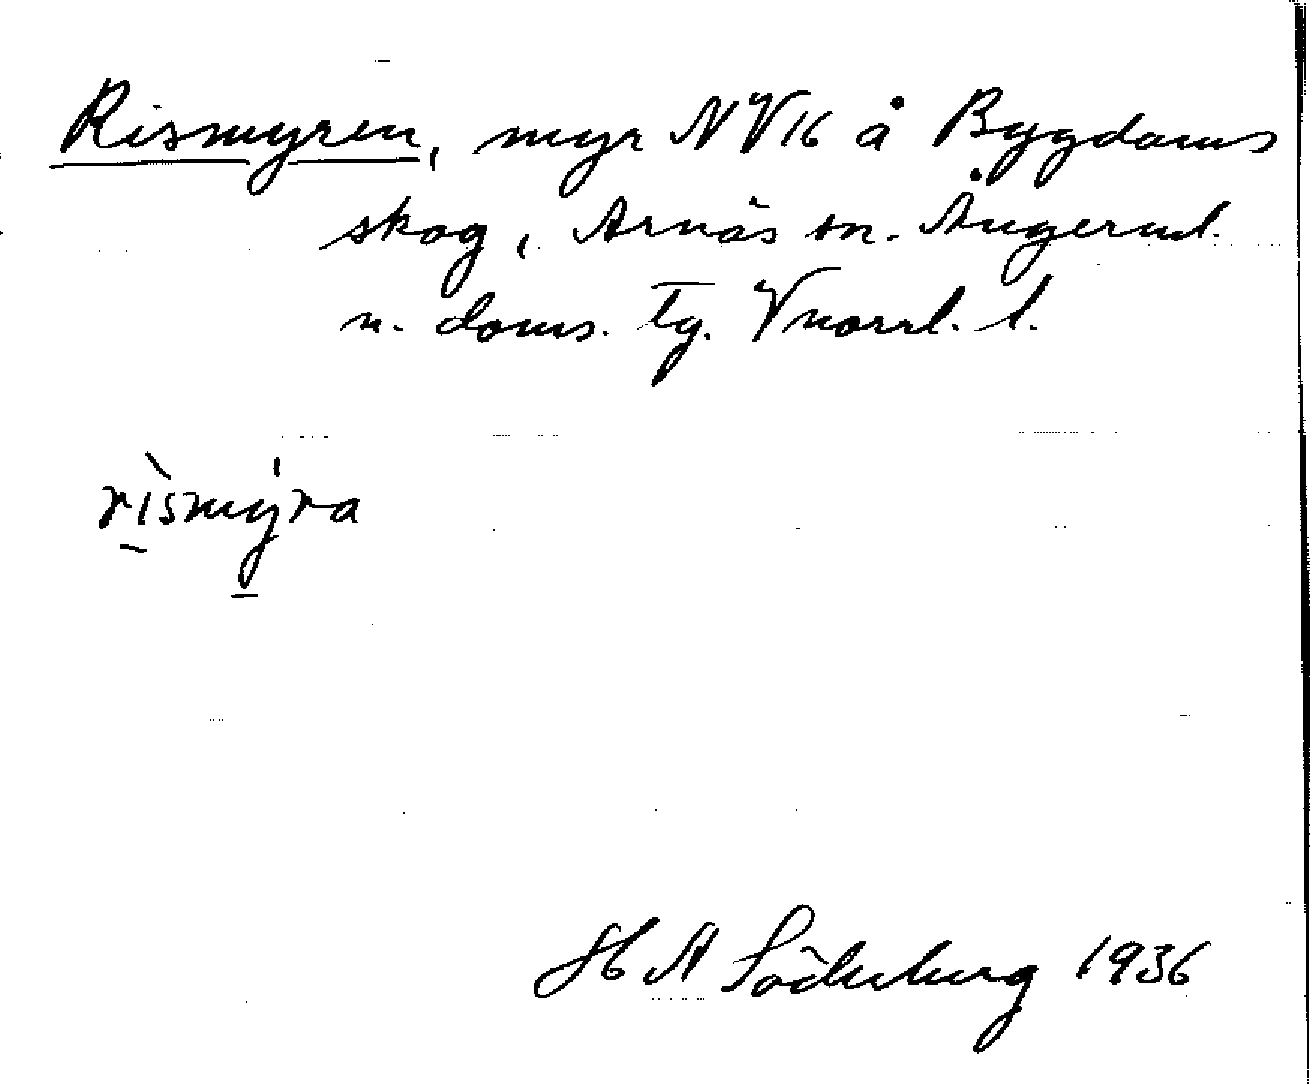 Rismyren, myr NV16 å Bygdoms
skog, Arnäs sn. Ångerml.
n. doms. tg. Vnorrl. l.
rìsmy̱ra
H A Söderberg 1936